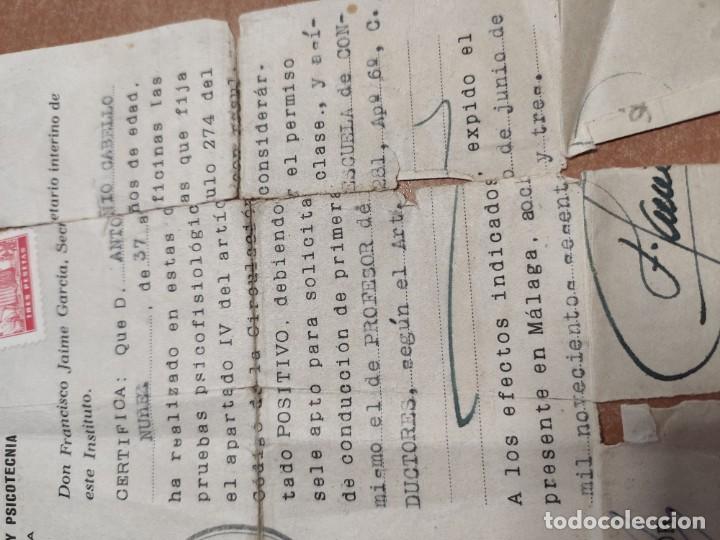 Y PSICOTECNIA
TRES PESETAS
Don Francisco Jaime García, Secretario interino de
este Instituto.
CERTIFICA: Que D. ANTONIO CABELLO
NUÑEZ, de 37 años de edad,
ha realizado en estas oficinas las
pruebas psicofisiológicas que fija
el apartado IV del artículo 274 del
Código de la Circulación con resul
tado POSITIVO, debiendo considerár.
sele apto para solicitar el permiso
de conducción de primera clase., y así-
mismo el de PROFESOR DE ESCUELA DE CON-
DUCTORES, según el Art. 281, Apº 6º, C.
A los efectos indicados, expido el
presente en Málaga, de junio de
mil novecientos sesent y tres.
todocoleccion